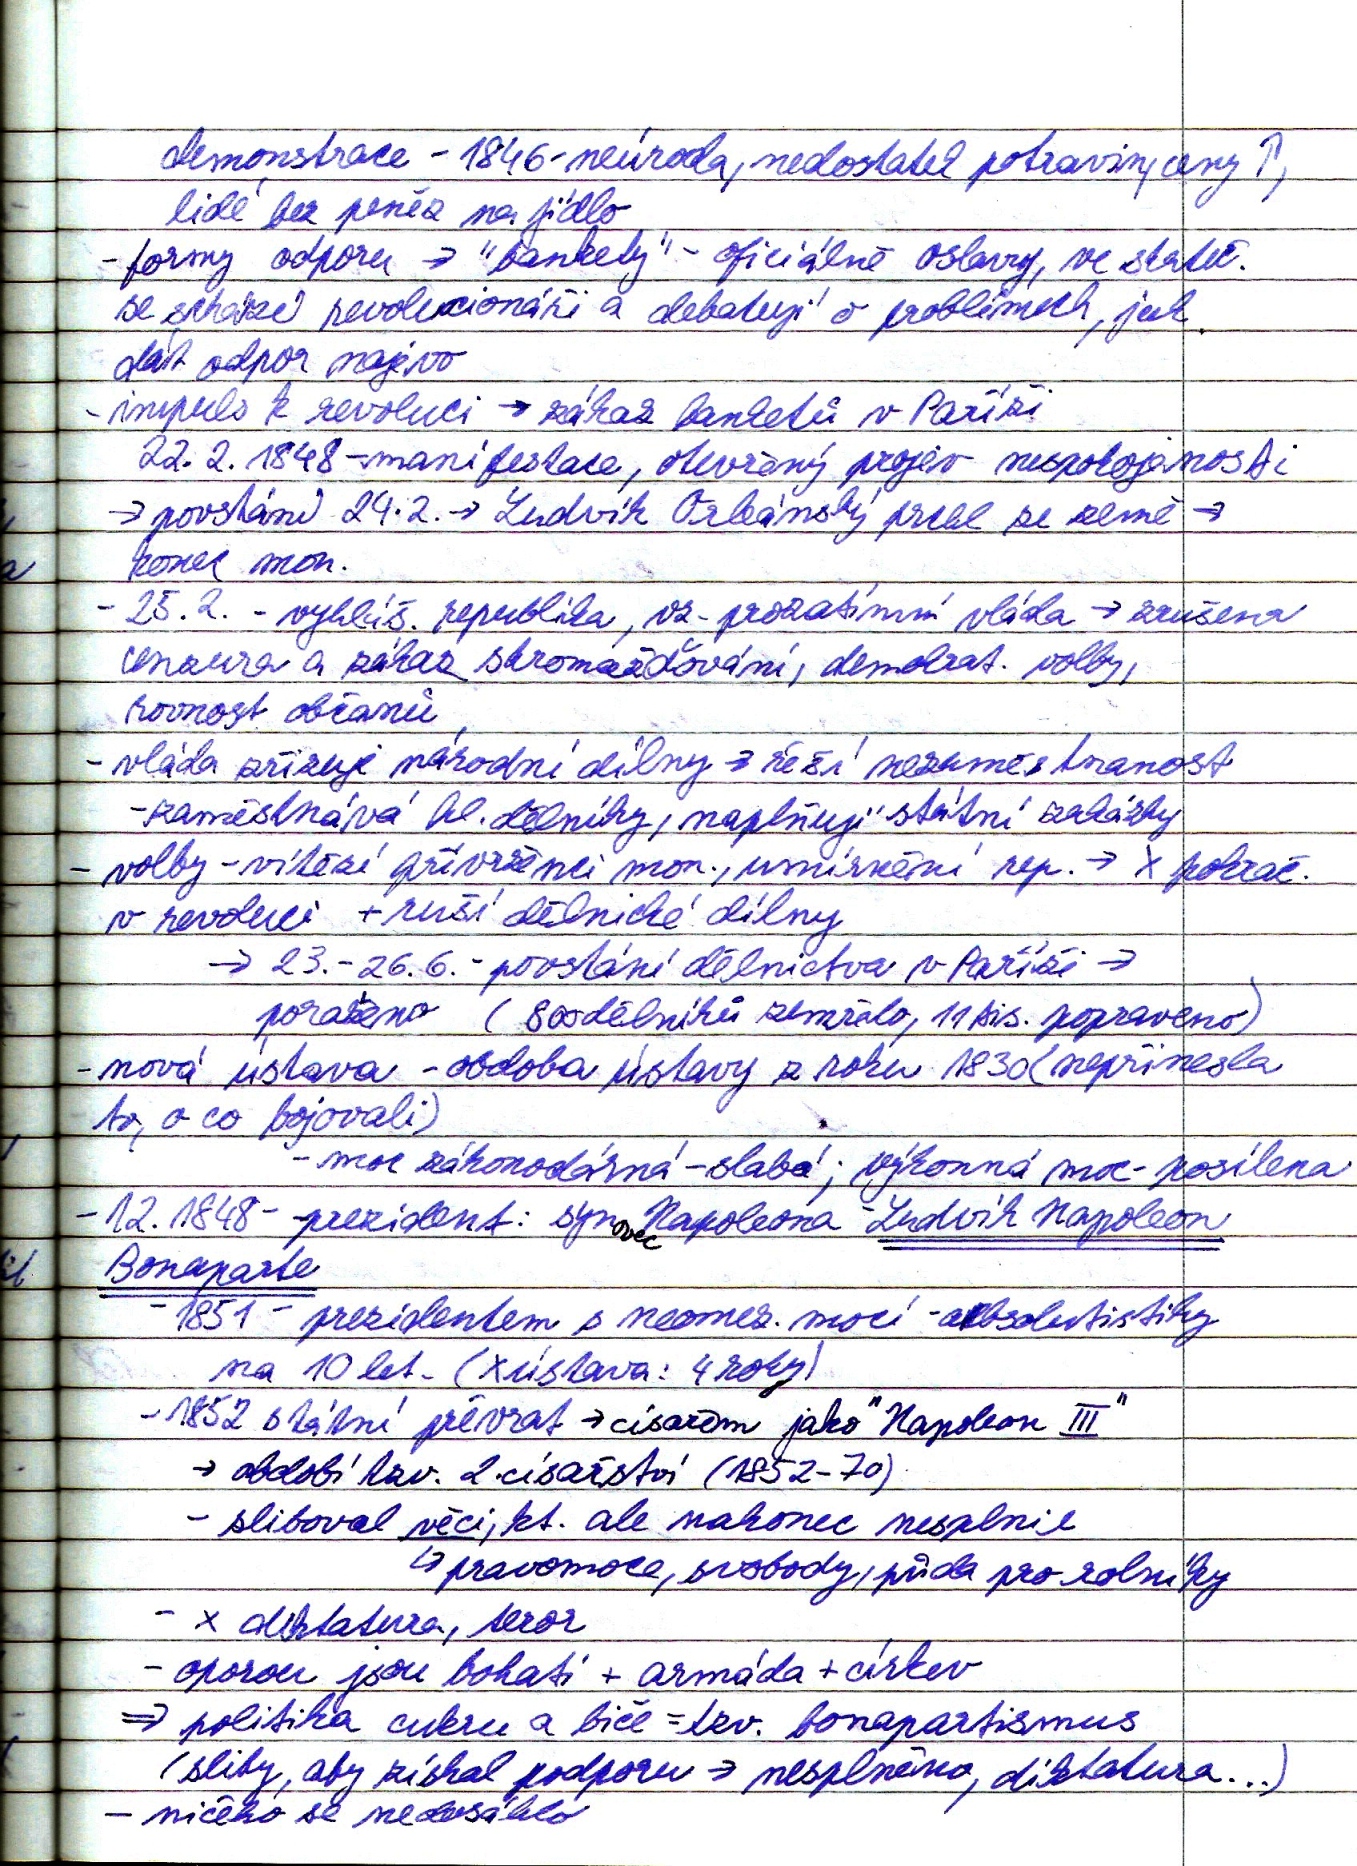 demonstrace - 1846 - neúroda, nedostatek potravin, ceny ↑,
lidé bez peněz na jídlo
- formy odporu → "bankety" - oficiálně oslavy, ve skuteč.
se schází revolucionáři a debatují o problémech, jak
dát odpor najevo
- impuls k revoluci → zákaz banketů v Paříži
22. 2. 1848 - manifestace, otevřený projev nespokojenosti
→ povstání 24. 2. → Ludvík Orleánský prchl ze země →
konec mon.
- 25. 2. - vyhláš. republika, vz. prozatímní vláda → zrušena
cenzura a zákaz shromažďování, demokrat. volby,
rovnost občanů
- vláda zřizuje národní dílny → řeší nezaměstnanost
- zaměstnává hl. dělníky, naplňují státní zakázky
- volby - vítězí přívrženci mon., umírnění rep. → X pokrač.
v revoluci + ruší dělnické dílny
→ 23. - 26. 6. - povstání dělnictva v Paříži →
poraženo (800 dělníků zemřelo, 11 tis. popraveno)
- nová ústava - obdoba ústavy z roku 1830 (nepřinesla
to, o co bojovali)
- moc zákonodárná - slabá; výkonná moc - posílena
- 12. 1848 - prezident: synovec Napoleona - Ludvík Napoleon
Bonaparte
- 1851 - prezidentem s neomez. mocí - absolutistiky
na 10 let. (X ústava: 4 roky)
- 1852 státní převrat → císařem jako "Napoleon III"
→ období tzv. 2. císařství (1852-70)
- sliboval věci, kt. ale nakonec nesplnil
↳ pravomoce, svobody, půda pro rolníky
- x diktatura, teror
- oporou jsou bohatí + armáda + církev
⇒ politika cukru a biče = tzv. bonapartismus
(sliby, aby získal podporu → nesplněno, diktatura...)
- ničeho se nedosáhlo